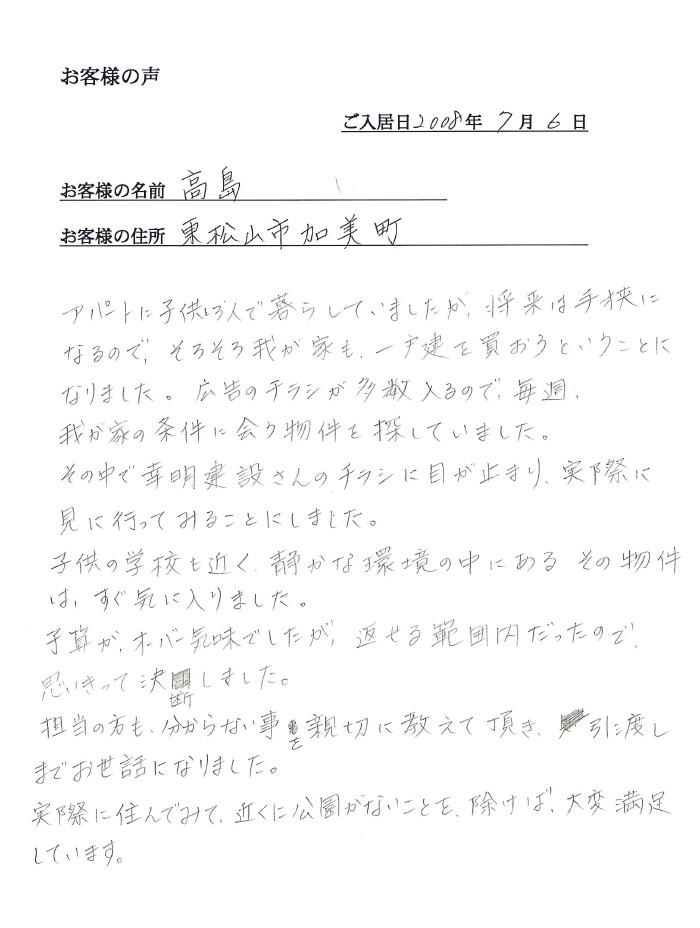 お客様の声
ご入居日2008年 7月 6日
お客様の名前 高島
お客様の住所 東松山市加美町
アパートに子供と3人で暮らしていましたが、将来は手狭に
なるので、そろそろ我が家も、一戸建を買おうということに
なりました。広告のチラシが多数入るので、毎週、
我が家の条件に会う物件を探していました。
その中で幸明建設さんのチラシに目が止まり、実際に
見に行ってみることにしました。
子供の学校も近く、静かな環境の中にあるその物件
は、すぐ気に入りました。
予算が、オーバー気味でしたが、返せる範囲内だったので、
思いきって決断しました。
担当の方も、分からない事を親切に教えて頂き、引に度し
までお世話になりました。
実際に住んでみて、近くに公園がないことを、除けば、大変満足
しています。